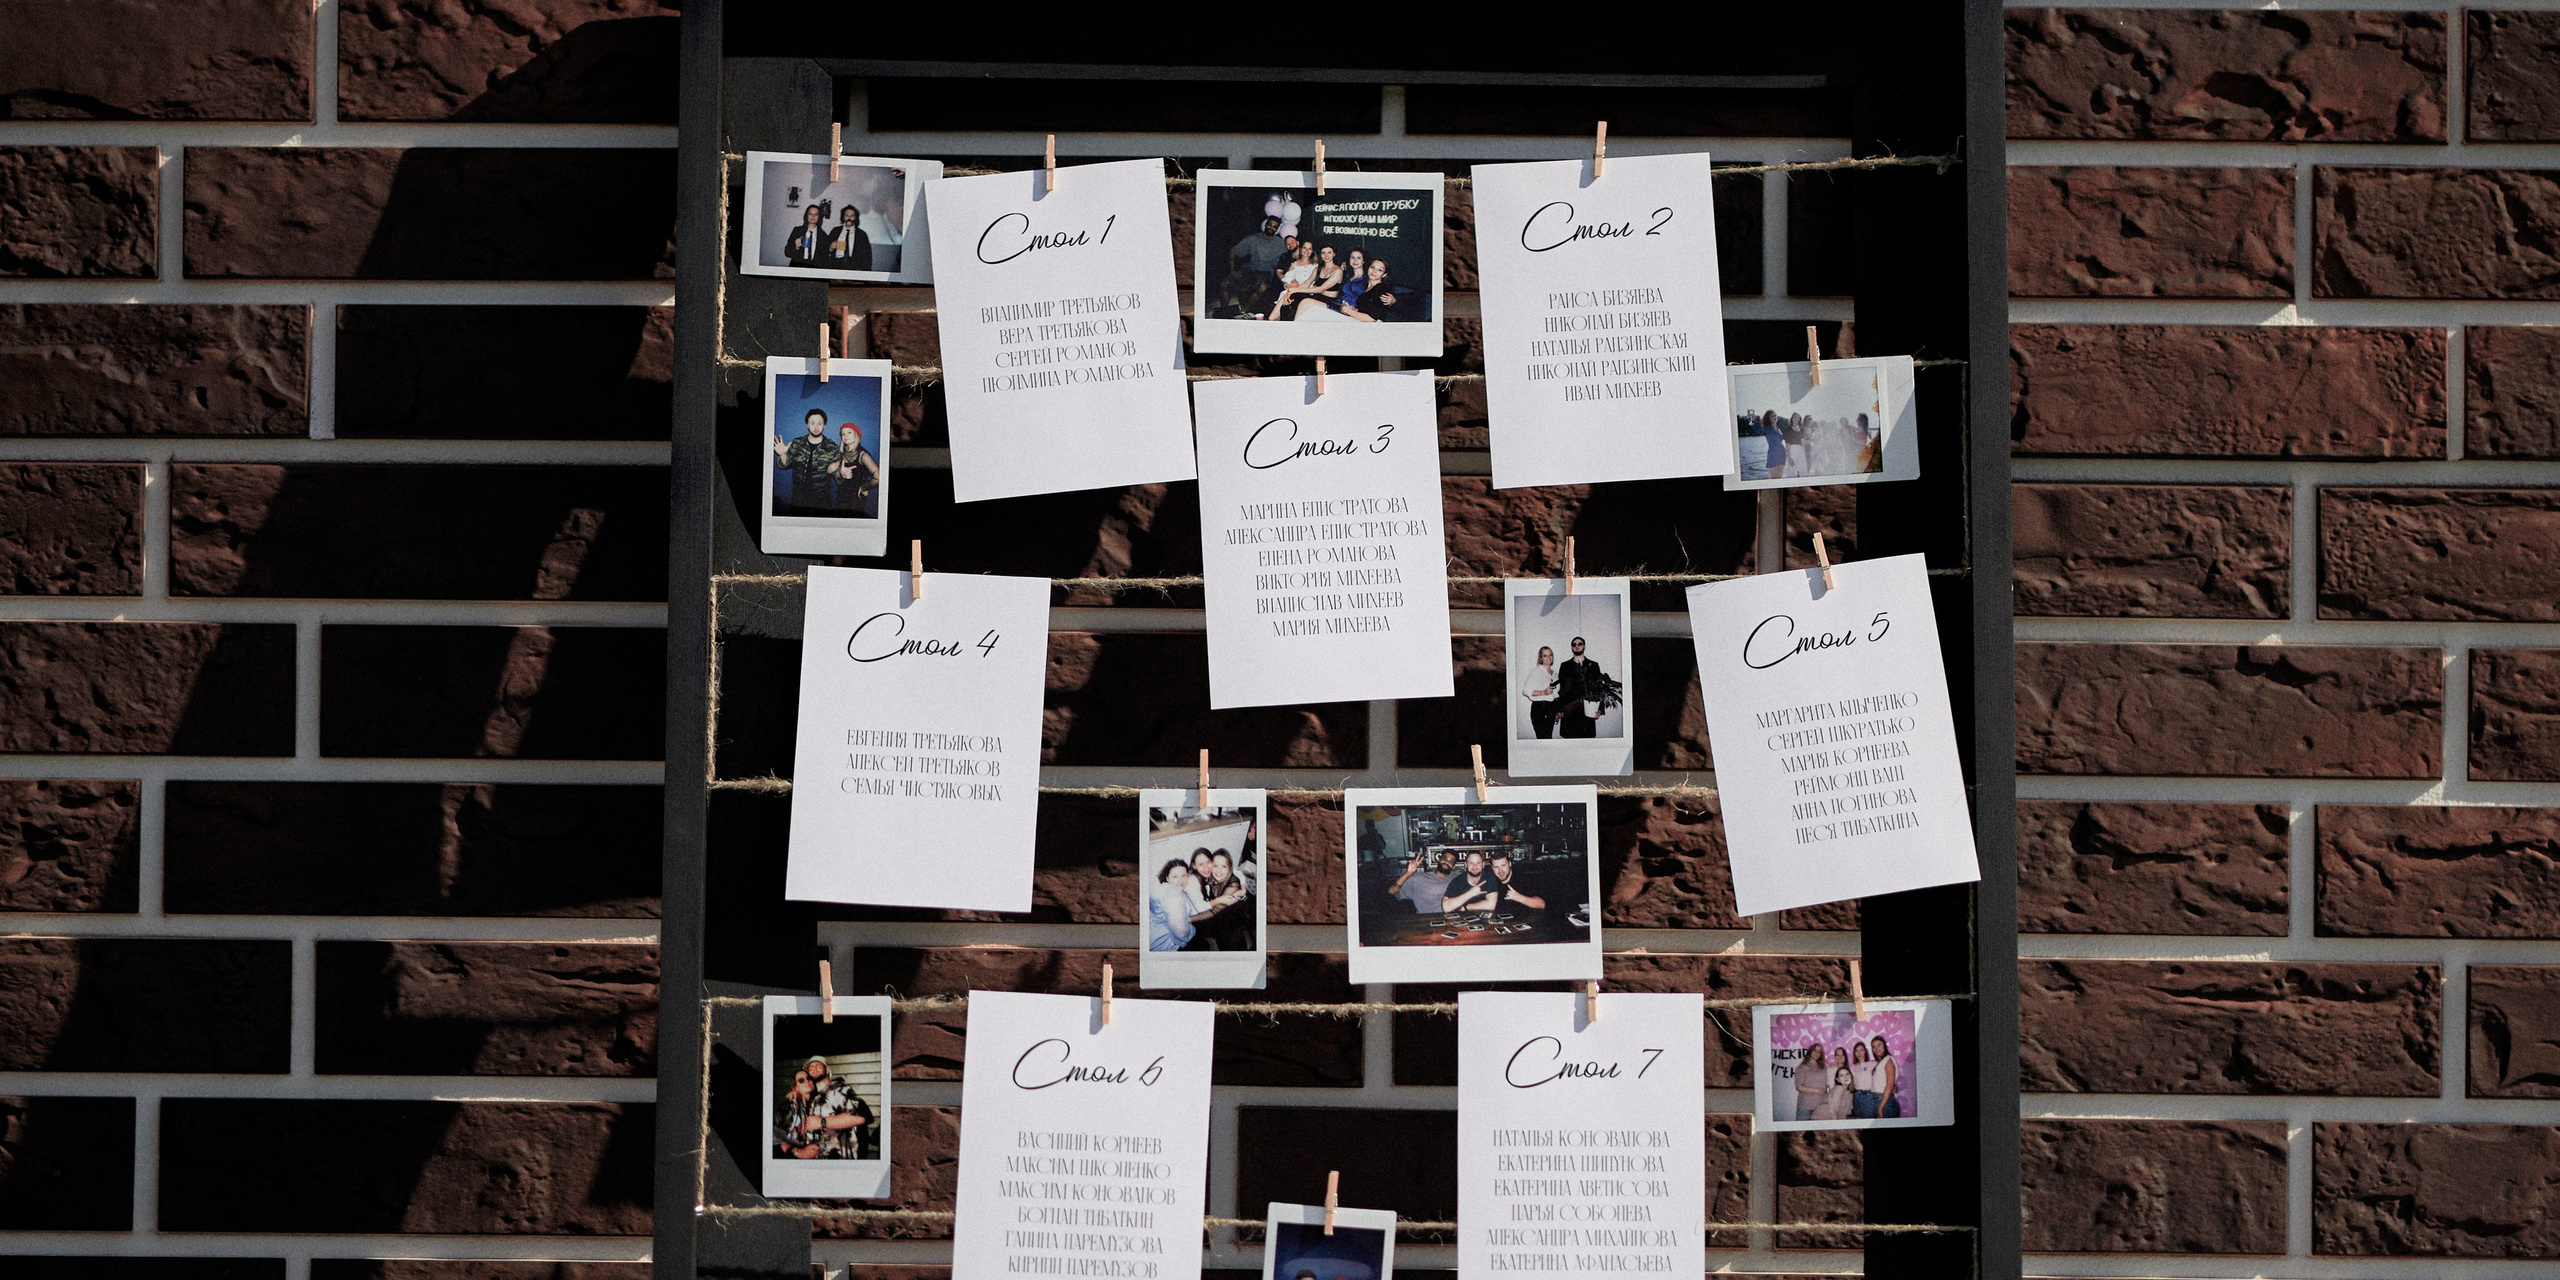 Стол 1
ВЛАДИМИР ТРЕТЬЯКОВ
ВЕРА ТРЕТЬЯКОВА
СЕРГЕЙ РОМАНОВ
ЛЮДМИЛА РОМАНОВА
СЕЙЧАС Я ПОЛОЖУ ТРУБКУ
И ПОКАЖУ ВАМ МИР
ГДЕ ВОЗМОЖНО ВСЁ
Стол 2
РАИСА БИЗЯЕВА
НИКОЛАЙ БИЗЯЕВ
НАТАЛЬЯ РАДЗИНСКАЯ
НИКОЛАЙ РАДЗИНСКИЙ
ИВАН МИХЕЕВ
Стол 3
МАРИНА ЕЛИСТРАТОВА
АЛЕКСАНДРА ЕЛИСТРАТОВА
ЕЛЕНА РОМАНОВА
ВИКТОРИЯ МИХЕЕВА
ВЛАДИСЛАВ МИХЕЕВ
МАРИЯ МИХЕЕВА
Стол 4
ЕВГЕНИЯ ТРЕТЬЯКОВА
АЛЕКСЕЙ ТРЕТЬЯКОВ
СЕМЬЯ ЧИСТЯКОВЫХ
Стол 5
МАРГАРИТА КЛЫЧЕНКО
СЕРГЕЙ ШКУРАТЬКО
МАРИЯ КОРНЕЕВА
РЕЙМОНД ВАШ
АННА ЛОГИНОВА
ЛЕСЯ ТИБАТКИНА
Стол 6
ВАСИЛИЙ КОРНЕЕВ
МАКСИМ ШКОЛЕНКО
МАКСИМ КОНОВАЛОВ
БОГДАН ТИБАТКИН
ГАЛИНА ДАРЕМУЗОВА
КИРИЛЛ ДАРЕМУЗОВ
Стол 7
НАТАЛЬЯ КОНОВАЛОВА
ЕКАТЕРИНА ШИПУНОВА
ЕКАТЕРИНА АВЕТИСОВА
ДАРЬЯ СОБОЛЕВА
АЛЕКСАНДРА МИХАЙЛОВА
ЕКАТЕРИНА АФАНАСЬЕВА